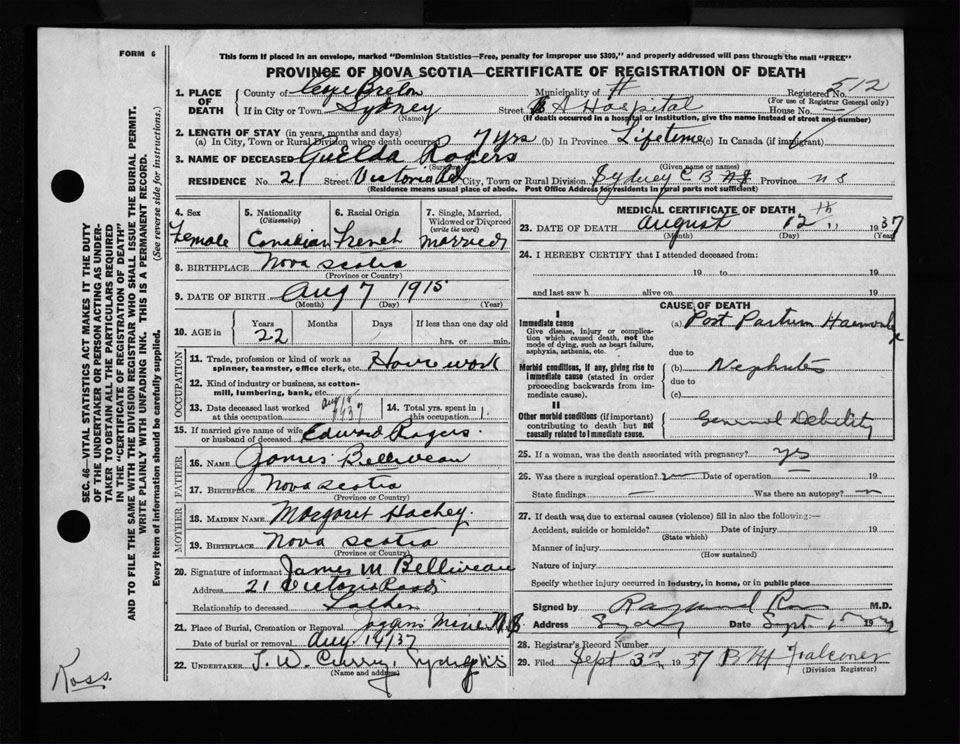 FORM 6
This form if placed in an envelope, marked "Dominion Statistics—Free, penalty for improper use $300," and properly addressed will pass through the mail "FREE"
PROVINCE OF NOVA SCOTIA—CERTIFICATE OF REGISTRATION OF DEATH
1. PLACE OF DEATH County of Cape Breton Municipality of Registered No. 512
(For use of Registrar General only)
If in City or Town Sydney Street Hospital House No.
(Name) (If death occurred in a hospital or institution, give the name instead of street and number)
2. LENGTH OF STAY (in years, months and days)
(a) In City, Town or Rural Division where death occurred 7 yrs (b) In Province Lifetime (c) In Canada (if immigrant)
3. NAME OF DECEASED Guelda Rogers
(Surname) (Given name or names)
RESIDENCE No. 21 Street Victoria Rd City, Town or Rural Division Sydney C B Province N S
(Residence means usual place of abode. Post Office Address for residents in rural parts not sufficient)
4. Sex Female
5. Nationality (Citizenship) Canadian
6. Racial Origin French
7. Single, Married, Widowed or Divorced (write the word) Married
8. BIRTHPLACE Nova Scotia
(Province or Country)
9. DATE OF BIRTH Aug 7 1915
(Month) (Day) (Year)
10. AGE in Years 22 Months Days If less than one day old hrs. or min.
OCCUPATION
11. Trade, profession or kind of work as spinner, teamster, office clerk, etc. Housework
12. Kind of industry or business, as cotton-mill, lumbering, bank, etc.
13. Date deceased last worked at this occupation Aug 1937
14. Total yrs. spent in this occupation 1
15. If married give name of wife or husband of deceased Edward Rogers.
FATHER
16. Name James Belliveau
17. Birthplace Nova Scotia
(Province or Country)
MOTHER
18. Maiden Name Margaret Hachey.
19. Birthplace Nova Scotia
(Province or Country)
20. Signature of informant James M Belliveau
Address 21 Victoria Road
Relationship to deceased Father
21. Place of Burial, Cremation or Removal Joggins Mine N.S
Date of burial or removal Aug. 14/37
22. UNDERTAKER T. W. Curry, Sydney NS
(Name and address)
MEDICAL CERTIFICATE OF DEATH
23. DATE OF DEATH August 12th 1937
(Month) (Day) (Year)
24. I HEREBY CERTIFY that I attended deceased from:
19 to 19
and last saw h alive on 19
CAUSE OF DEATH
I
Immediate cause
Give disease, injury or complication which caused death, not the mode of dying, such as heart failure, asphyxia, asthenia, etc.
(a) Post Partum Haemorrhage
due to
Morbid conditions, if any, giving rise to immediate cause (stated in order proceeding backwards from immediate cause).
(b) Nephritis
due to
(c)
II
Other morbid conditions (if important) contributing to death but not causally related to immediate cause.
General Debility
25. If a woman, was the death associated with pregnancy? yes
26. Was there a surgical operation? no Date of operation — 19
State findings — Was there an autopsy? no
27. If death was due to external causes (violence) fill in also the following:—
Accident, suicide or homicide? Date of injury 19
(State which)
Manner of injury
(How sustained)
Nature of injury
Specify whether injury occurred in industry, in home, or in public place
Signed by Raymond M.D.
Address Sydney Date Sept 19
28. Registrar's Record Number
29. Filed Sept 3rd 1937 B H Falconer
(Division Registrar)
SEC. 46—VITAL STATISTICS ACT MAKES IT THE DUTY
OF THE UNDERTAKER OR PERSON ACTING AS UNDER-
TAKER TO OBTAIN ALL THE PARTICULARS REQUIRED
IN THE "CERTIFICATE OF REGISTRATION OF DEATH"
AND TO FILE THE SAME WITH THE DIVISION REGISTRAR WHO SHALL ISSUE THE BURIAL PERMIT.
WRITE PLAINLY WITH UNFADING INK. THIS IS A PERMANENT RECORD.
Every item of information should be carefully supplied. (See reverse side for instructions.)
Ross.